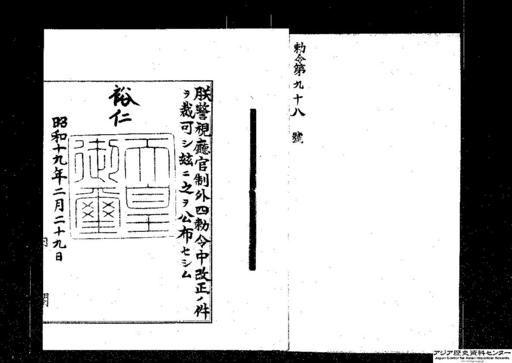 勅令第九十八號
朕警視廳官制外四勅令中改正ノ件
ヲ裁可シ玆ニ之ヲ公布セシム
裕仁
天皇
御璽
昭和十九年二月二十九日
内閣
アジア歴史資料センター
Japan Center for Asian Historical Records